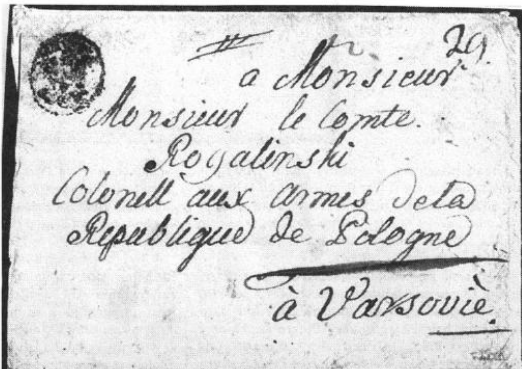 29.
a Monsieur
Monsieur le Comte.
Rogalinski
Colonell aux Armes dela
Republique de Pologne
à Varsovie.